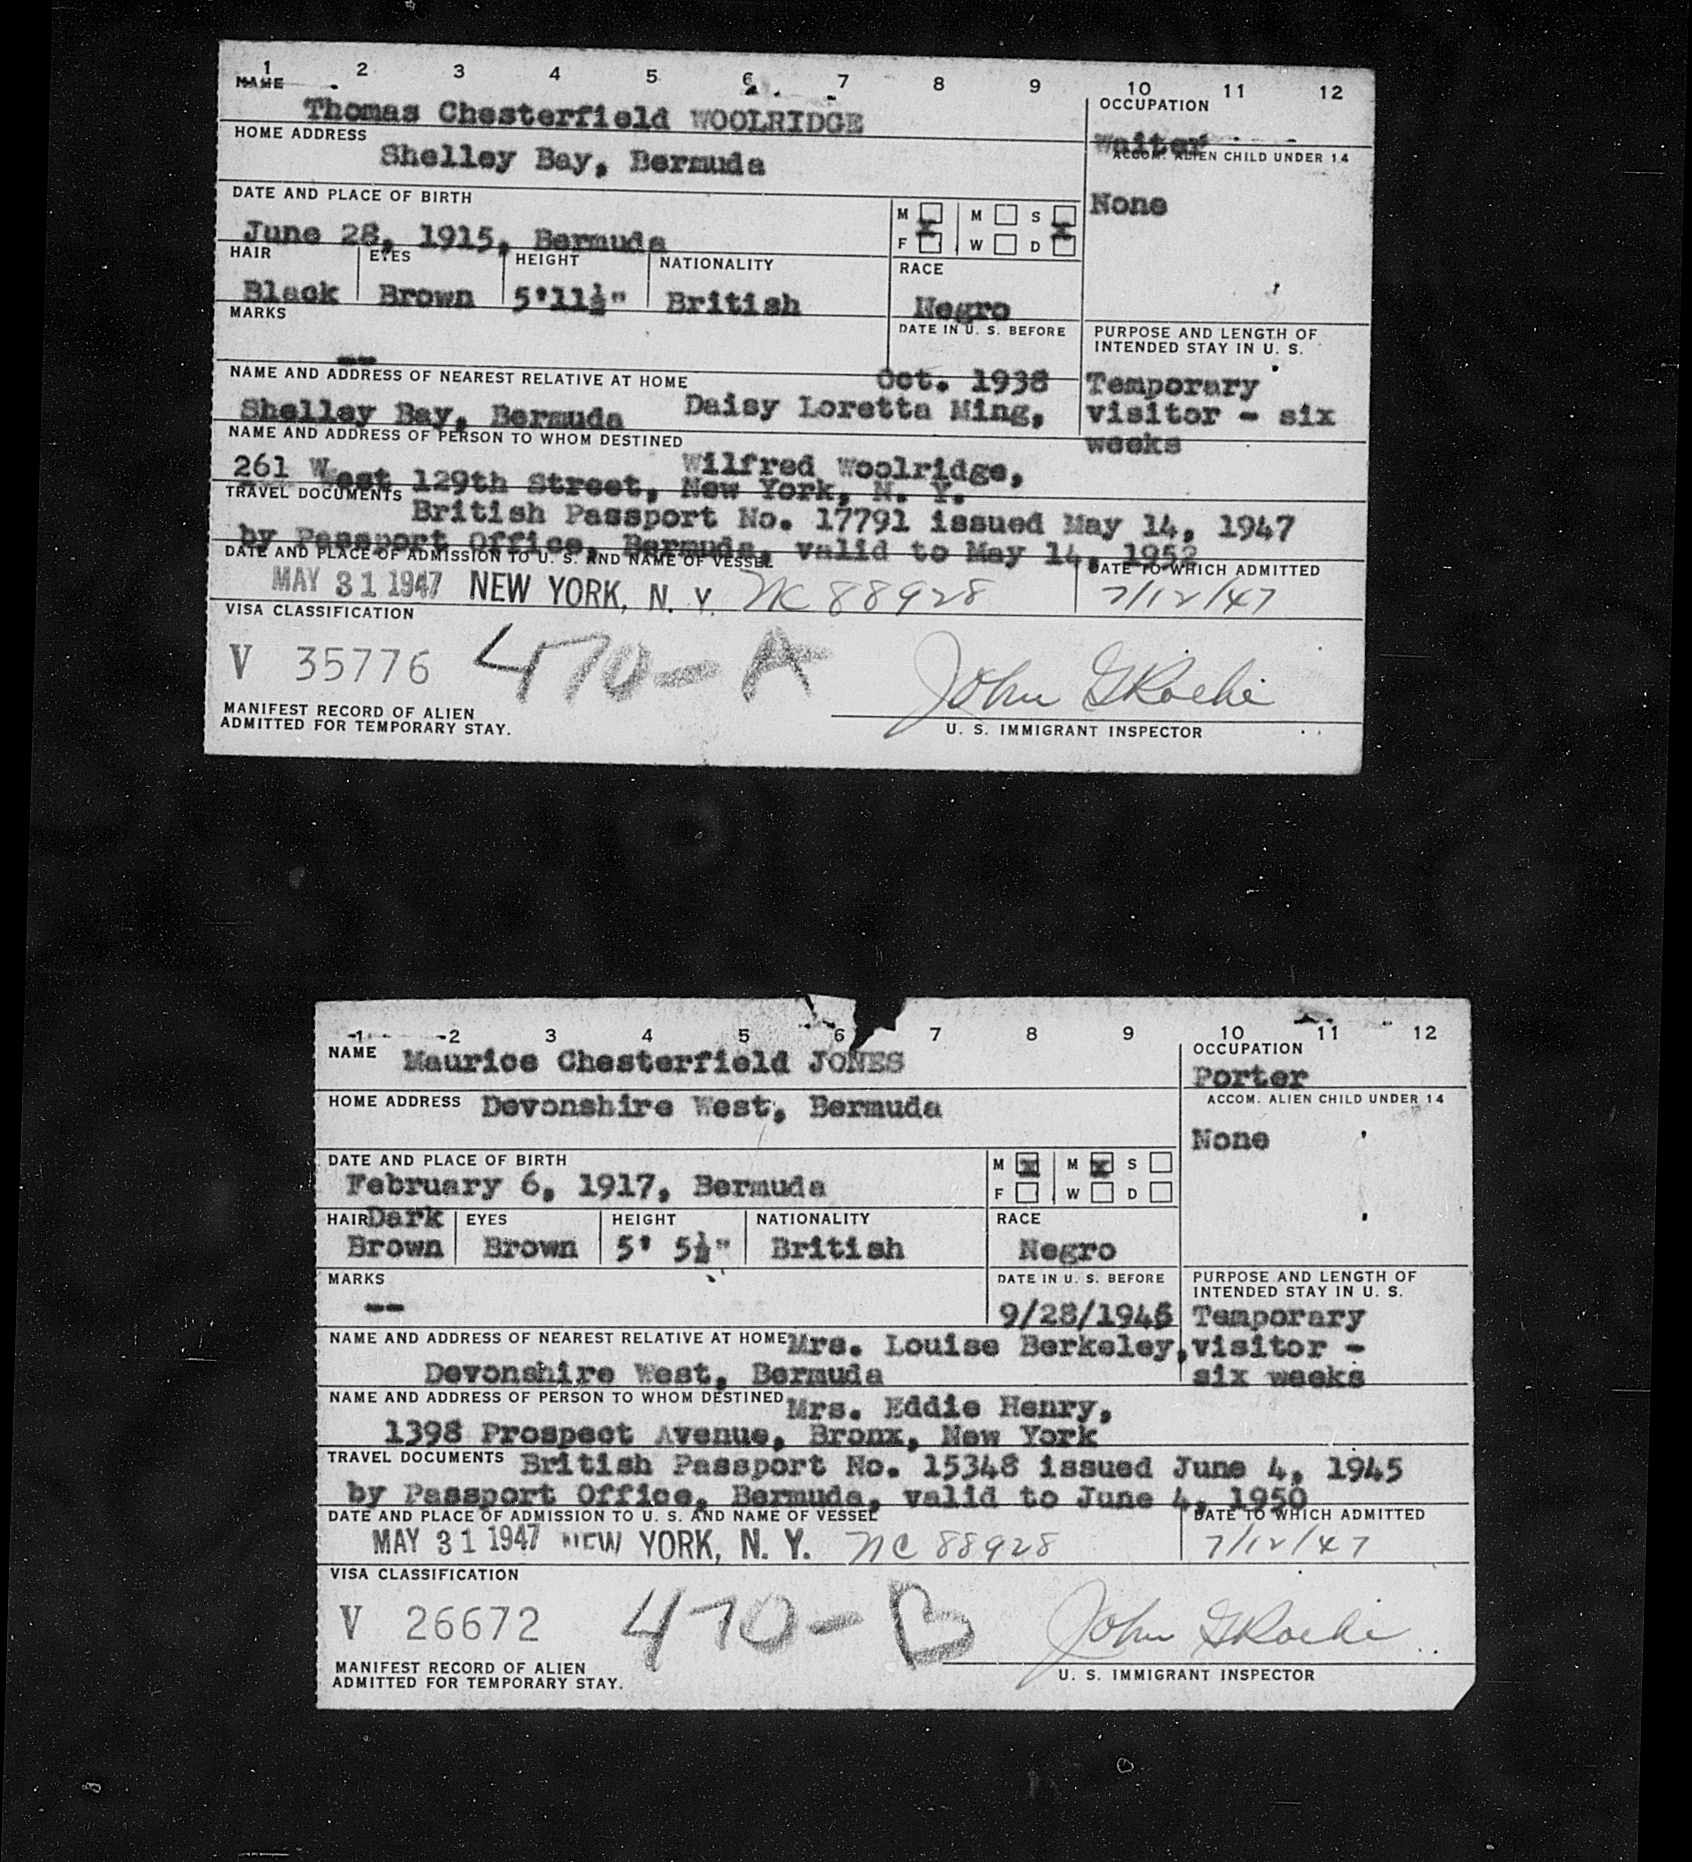 1 2 3 4 5 6 7 8 9 10 11 12
NAME Thomas Chesterfield WOOLRIDGE
OCCUPATION
Waiter
HOME ADDRESS
Shelley Bay, Bermuda
ACCOM. ALIEN CHILD UNDER 14
None
DATE AND PLACE OF BIRTH
June 28, 1915, Bermuda
M X M S X
F W D
HAIR EYES HEIGHT NATIONALITY RACE
Black Brown 5'11½" British Negro
MARKS
--
DATE IN U. S. BEFORE
Oct. 1938
PURPOSE AND LENGTH OF
INTENDED STAY IN U. S.
Temporary
visitor - six
weeks
NAME AND ADDRESS OF NEAREST RELATIVE AT HOME
Daisy Loretta Ming,
Shelley Bay, Bermuda
NAME AND ADDRESS OF PERSON TO WHOM DESTINED
Wilfred Woolridge,
261 West 129th Street, New York, N. Y.
TRAVEL DOCUMENTS
British Passport No. 17791 issued May 14, 1947
by Passport Office, Bermuda, valid to May 14, 1952
DATE AND PLACE OF ADMISSION TO U. S. AND NAME OF VESSEL
DATE TO WHICH ADMITTED
MAY 31 1947 NEW YORK, N. Y. NC 88928 7/12/47
VISA CLASSIFICATION
V 35776 470-A John G Roche
MANIFEST RECORD OF ALIEN
ADMITTED FOR TEMPORARY STAY.
U. S. IMMIGRANT INSPECTOR
1 2 3 4 5 6 7 8 9 10 11 12
NAME Maurice Chesterfield JONES
OCCUPATION
Porter
HOME ADDRESS Devonshire West, Bermuda
ACCOM. ALIEN CHILD UNDER 14
None
DATE AND PLACE OF BIRTH
February 6, 1917, Bermuda
M X M X S
F W D
HAIR Dark EYES HEIGHT NATIONALITY RACE
Brown Brown 5' 5½" British Negro
MARKS
--
DATE IN U. S. BEFORE
9/28/1945
PURPOSE AND LENGTH OF
INTENDED STAY IN U. S.
Temporary
visitor -
six weeks
NAME AND ADDRESS OF NEAREST RELATIVE AT HOME Mrs. Louise Berkeley,
Devonshire West, Bermuda
NAME AND ADDRESS OF PERSON TO WHOM DESTINED Mrs. Eddie Henry,
1398 Prospect Avenue, Bronx, New York
TRAVEL DOCUMENTS British Passport No. 15348 issued June 4, 1945
by Passport Office, Bermuda, valid to June 4, 1950
DATE AND PLACE OF ADMISSION TO U. S. AND NAME OF VESSEL
DATE TO WHICH ADMITTED
MAY 31 1947 NEW YORK, N. Y. NC 88928 7/12/47
VISA CLASSIFICATION
V 26672 470-B John G Roche
MANIFEST RECORD OF ALIEN
ADMITTED FOR TEMPORARY STAY.
U. S. IMMIGRANT INSPECTOR